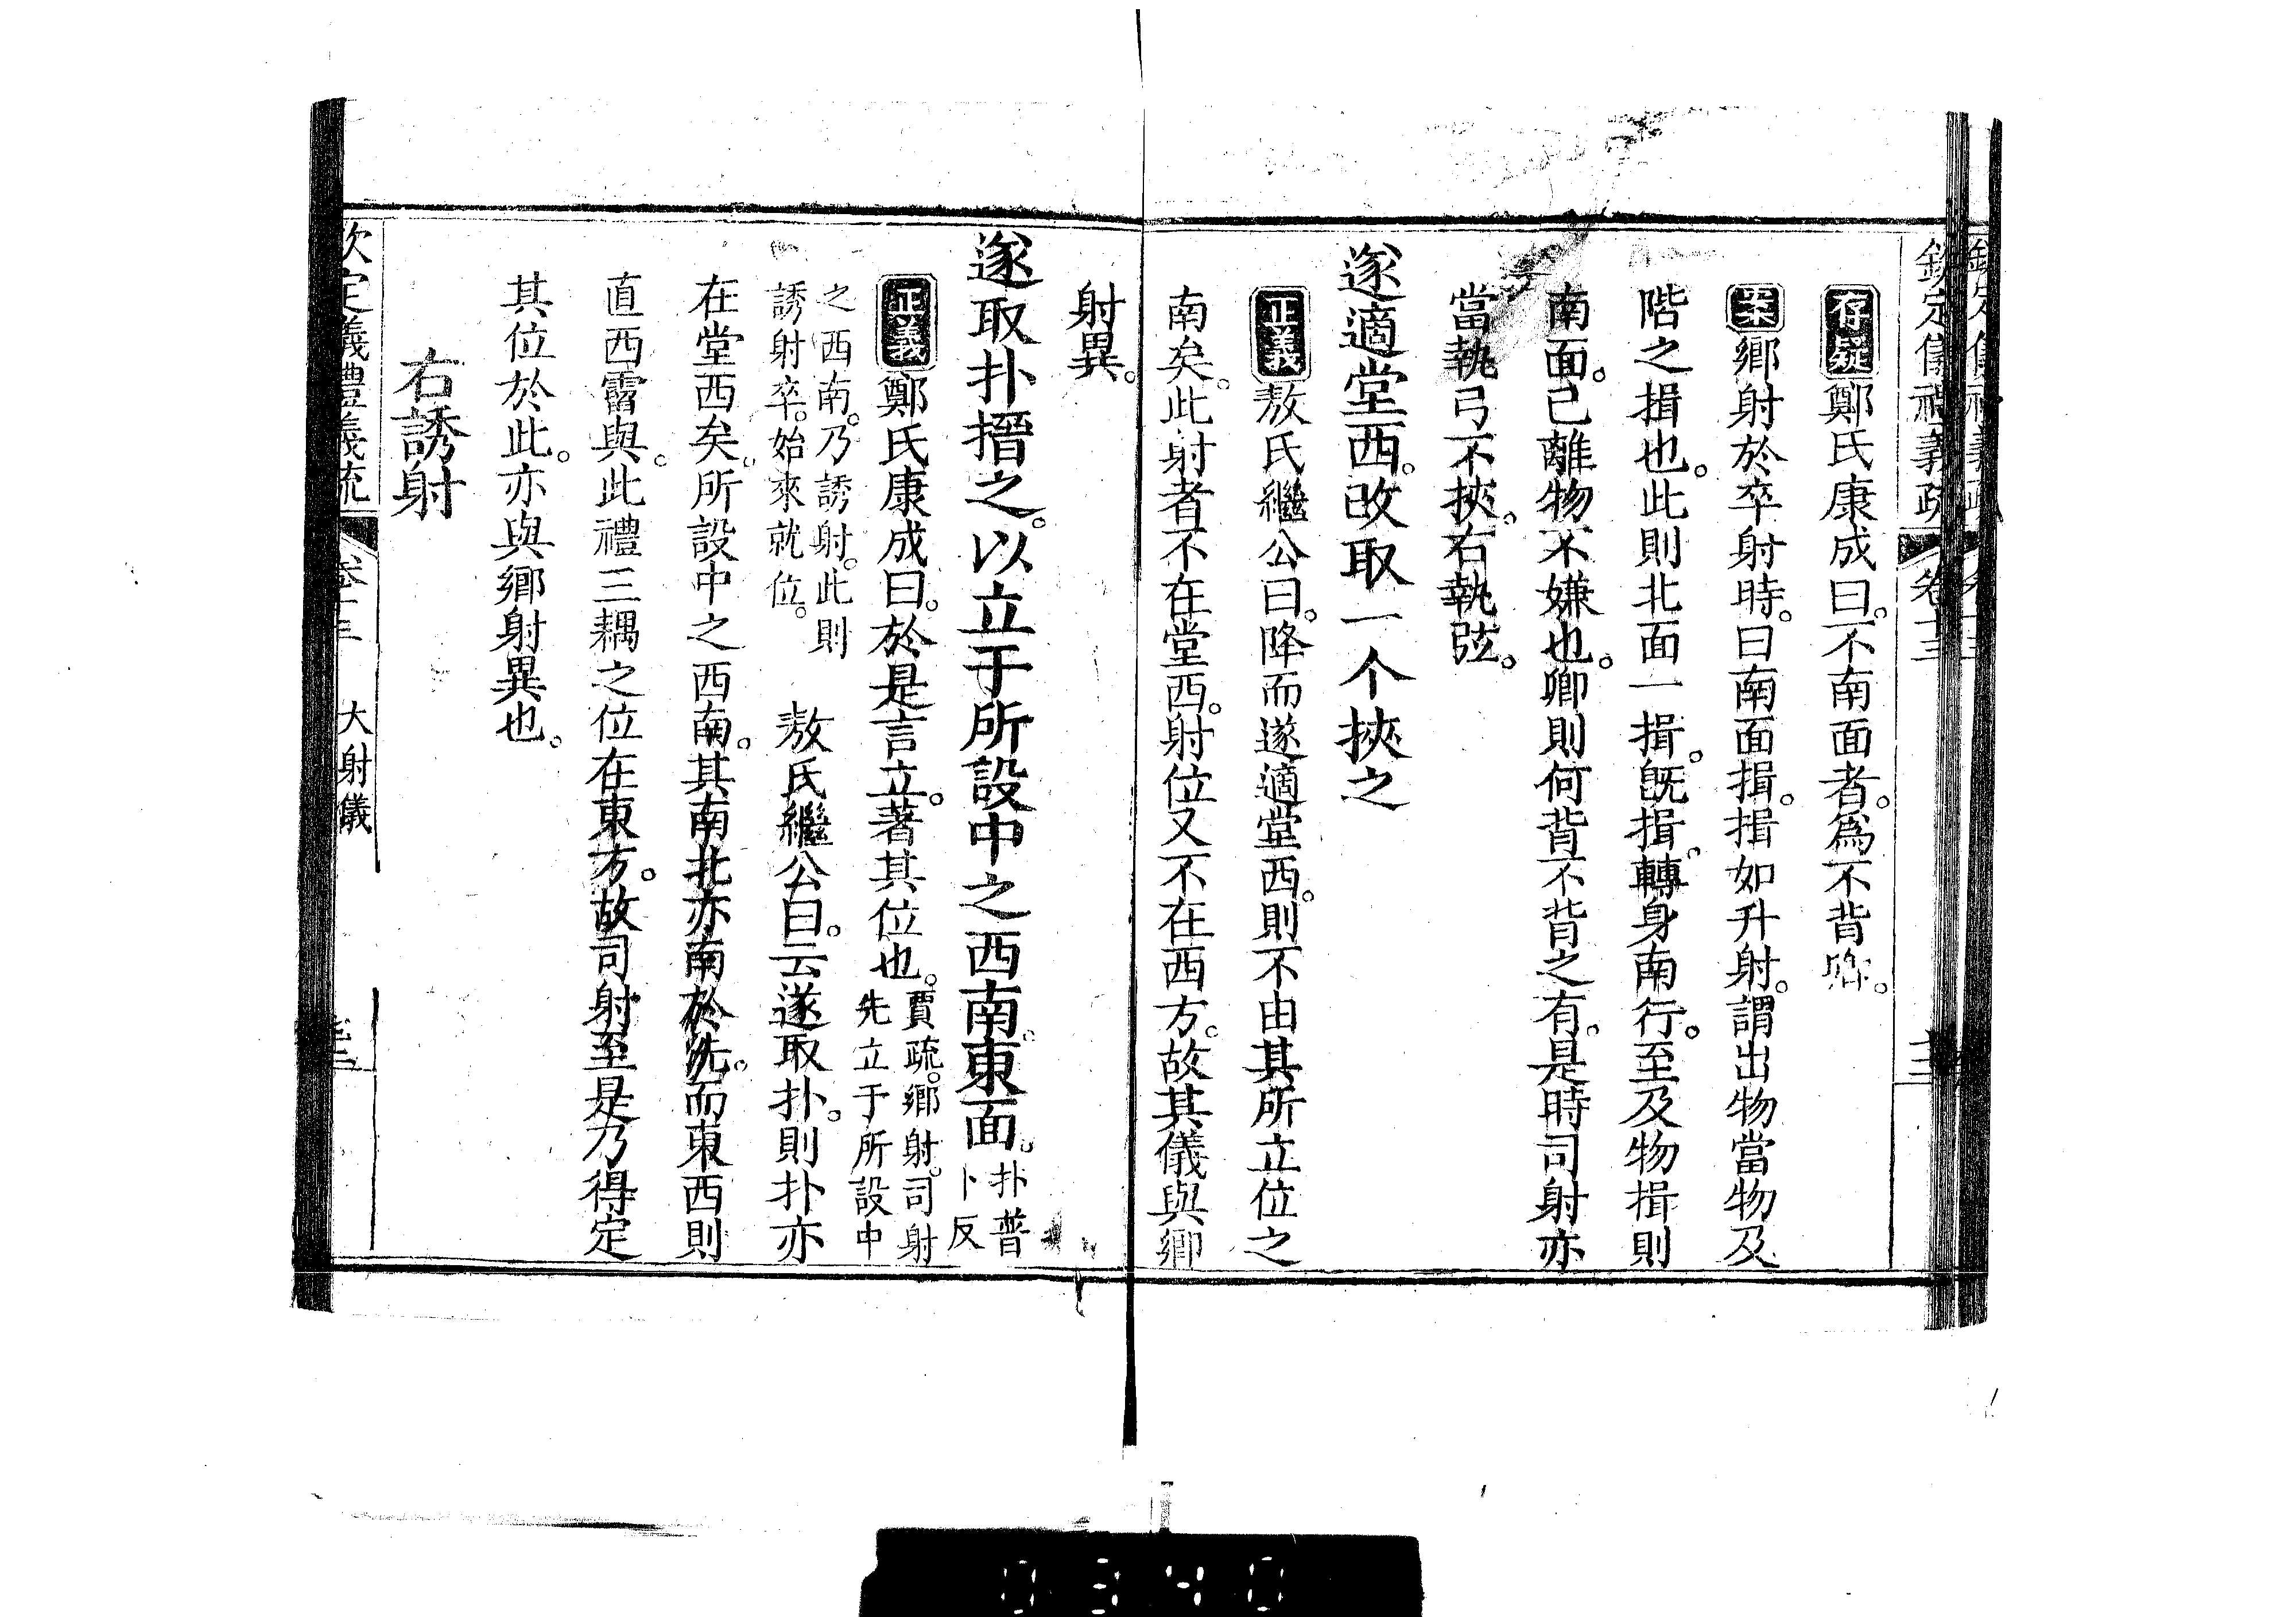 欽定儀禮義疏 卷十三
存疑鄭氏康成曰。不南面者。為不背卿。
案鄉射於卒射時。曰南面揖。揖如升射。謂出物當物及
階之揖也。此則北面一揖。旣揖。轉身南行。至及物揖則
南面。已離物不嫌也。卿則何背不背之有。是時司射亦
當執弓不挾。右執弦。
遂適堂西。改取一个挾之
正義敖氏繼公曰。降而遂適堂西。則不由其所立位之
南矣。此射者不在堂西。射位又不在西方。故其儀與鄉
射異。
遂取扑搢之。以立于所設中之西南。東面。扑普
卜反
正義鄭氏康成曰。於是言立。著其位也。賈疏。鄉射。司射
先立于所設中
之西南。乃誘射。此則
誘射卒。始來就位。
敖氏繼公曰。云遂取扑。則扑亦
在堂西矣。所設中之西南。其南北亦南於洗。而東西則
直西霤與。此禮三耦之位在東方。故司射至是乃得定
其位於此。亦與鄉射異也。
右誘射
欽定儀禮義疏 卷十三 大射儀